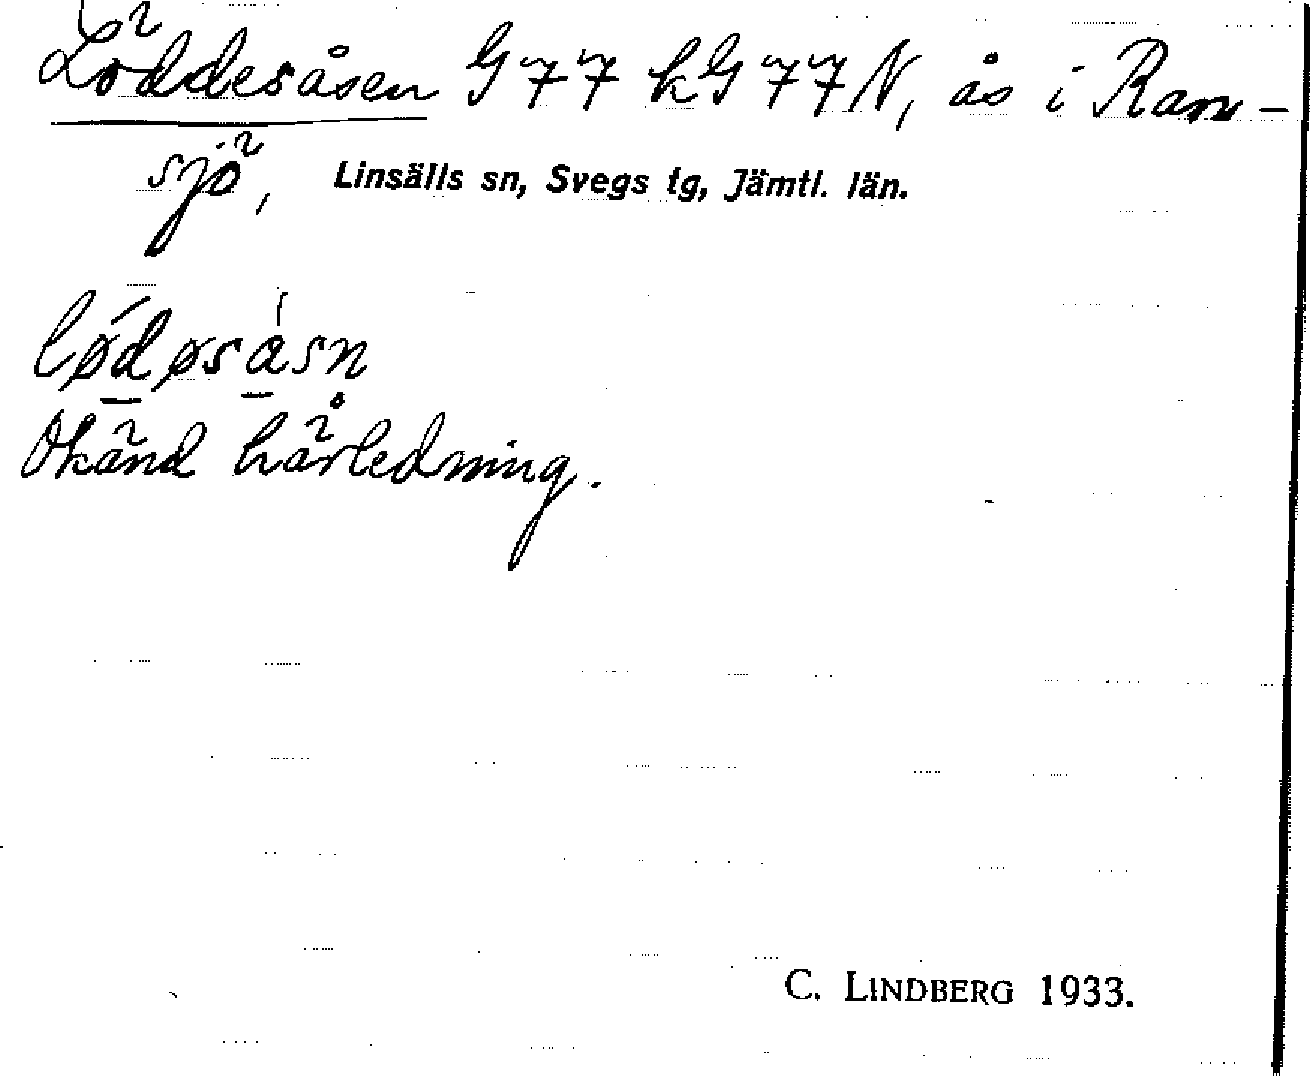 Löddesåsen G77 kG77N, ås i Ran-
sjö, Linsälls sn, Svegs tg, Jämtl. län.
lødøsåsn
Okänd härledning.
C. LINDBERG 1933.